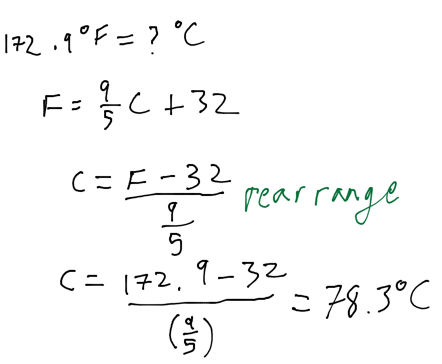 172.9°F = ? °C
F = 9/5 C + 32
C = F - 32 / 9/5 rearrange
C = 172.9 - 32 / (9/5) = 78.3°C